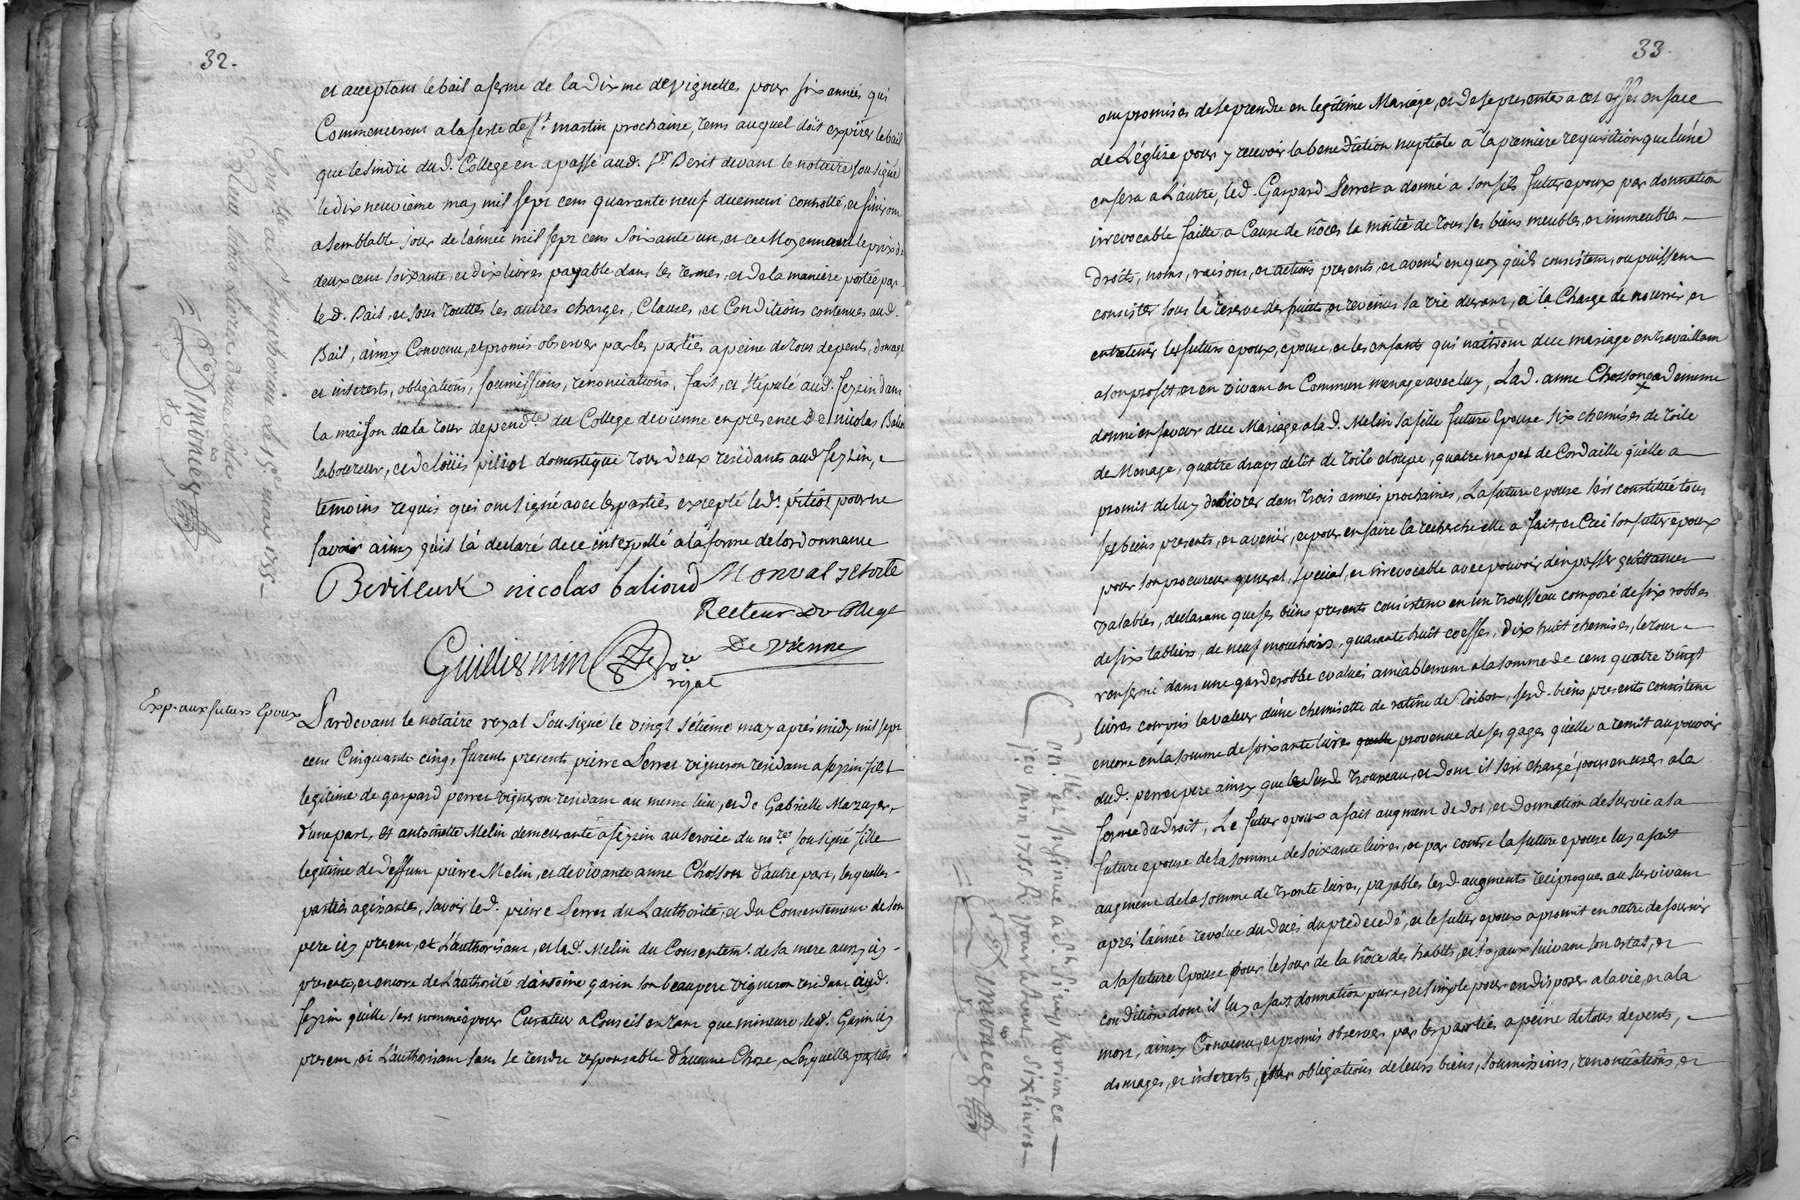 32.
et acceptant le bail a ferme de la dixme de vignettes pour six années qui
Commenceront a la feste de St. martin prochaine, tems auquel doit expirer le bail
que le sindic dud. College en a passé aud. Sr. devant le notaire sousigné
le dix neuvieme may mil sept cens quarante neuf duement controllé, et finiront
a semblable jour de l'année mil sept cens soixante un, et ce Moyennant le prix de
deux cent soixante, et dix livres payable dans les termes, et de la maniere portée par
led. Bail, et sous touttes les autres charges, Clauses, et Conditions contenues aud.
Bail, ainsy Convenu, et promis observer par les parties a peine de tous depents, domages
et interests, obligations, soumissions, renonciations, fait, et stipulé aud. seyzin dans
la maison de la tour dependte. du College de vienne en presence de nicolas
laboureur, et de loüis pitiot domestique tous deux residants aud. seyzin,
temoins requis qui ont signé avec les parties excepté led. pitiot pour ne
savoir ainsy qu'il l'a declaré de ce interpellé a la forme de l'ordonnance
nicolas baliond Monval jesuite
Recteur Du College
De Vienne
Guilliermin nore
royal
Exp. aux futurs Epoux
Pardevant le notaire royal sousigné le vingt sétieme may aprés midy mil sept
cens Cinquante cinq, furent presents pierre Perret vigneron residant a seyzin fils
legitime de gaspard perret vigneron residant au meme lieu, et de Gabrielle Mazuyer,
d'une part, et antoinette Melin demeurante a seyzin au service du nore. sousigné fille
legitime de deffunt pierre Melin, et de vivante anne Chosson d'autre part, lesquelles
parties agissantes, savoir led. pierre Perret du L'authorité, et du Consentement de son
pere icy present, et L'authorisant, et lad. Melin du Consentemt. de sa mere aussy icy
presente, et encore de L'authorité d'antoine garin son beaupere vigneron residant aud.
seyzin qu'elle s'est nommé pour Curateur a Conseil en tant que mineure, led. Garin icy
present, et L'authorisant sans se rendre responsable d'aucune Chose, Lesquelles parties
33.
ont promis de se prendre en legitime Mariage, et de se presenter a cet effet en face
de L'église pour y recevoir la benediction nuptiale a la premiere requisition que l'une
en fera a L'autre, led. Gaspard Perret a donné a son fils futur epoux par donnation
irrevocable faitte a Cause de nôces la moitié de tous ses biens meubles, et immeubles
droits, noms, raisons, et actions presents, et avenir en quoy qu'ils consistent, ou puissent
consister sous la reserve des fruits et revenus sa vie durant, a la Charge de nourrir et
entretenir les futurs epoux, epouse, et les enfants qui naitront de ce mariage en travaillant
a son profit et en vivant en Commun menage avec luy, Lad. anne Chosson a
donné en faveur de ce Mariage a lad. Melin sa fille future Epouse six chemises de toile
de Menage, quatre draps de lit de toile étoupe, quatre napes de Cordaille qu'elle a
promit de luy delivrer dans trois années prochaines, La future epouse s'est constitué tous
ses biens presents, et avenir, et pour en faire la recherche elle a fait, et Créé son futur epoux
pour son procureur general, special, et irrevocable avec pouvoir d'en passer quittances
valables, declarant que ses biens presents consistent en un trousseau composé de six robbes
de six tabliers, de neuf mouchoirs, quarante huit coeffes, dix huit chemises, le tout
renfermé dans une garderobbe evalués amiablement a la somme de cent quatre vingt
livres compris la valeur d'une chemisette de ratine de, sesd. biens presents consistent
encore en la somme de soixante livres provenue de ses gages qu'elle a remit au pouvoir
dud. perret pere ainsy que led. Trousseau, et dont il s'est chargé pour en user a la
forme du Droit, Le futur epoux a fait augment de dot, et donnation de survie a sa
future epouse de la somme de soixante livres, et par contre la future epouse luy a fait
augment de la somme de trente livres, payables lesd. augments reciproques au survivant
aprés l'année revolue du decés du predecedé, et le futur epoux a promit en outre de fournir
a la future Epouse pour le jour de la nôce des habits, et joyaux suivant son estat, et
condition dont il luy a fait donnation pure, et simple pour en disposer a la vie, et a la
mort, ainsy Convenu, et promis observer par les parties a peine de tous depents,
domages, et interests, obligations de leurs biens, soumissions, renonciations, et
Con. lé et insinué a St. Simphorien ce
juin 1755 R. pour le tout six livres